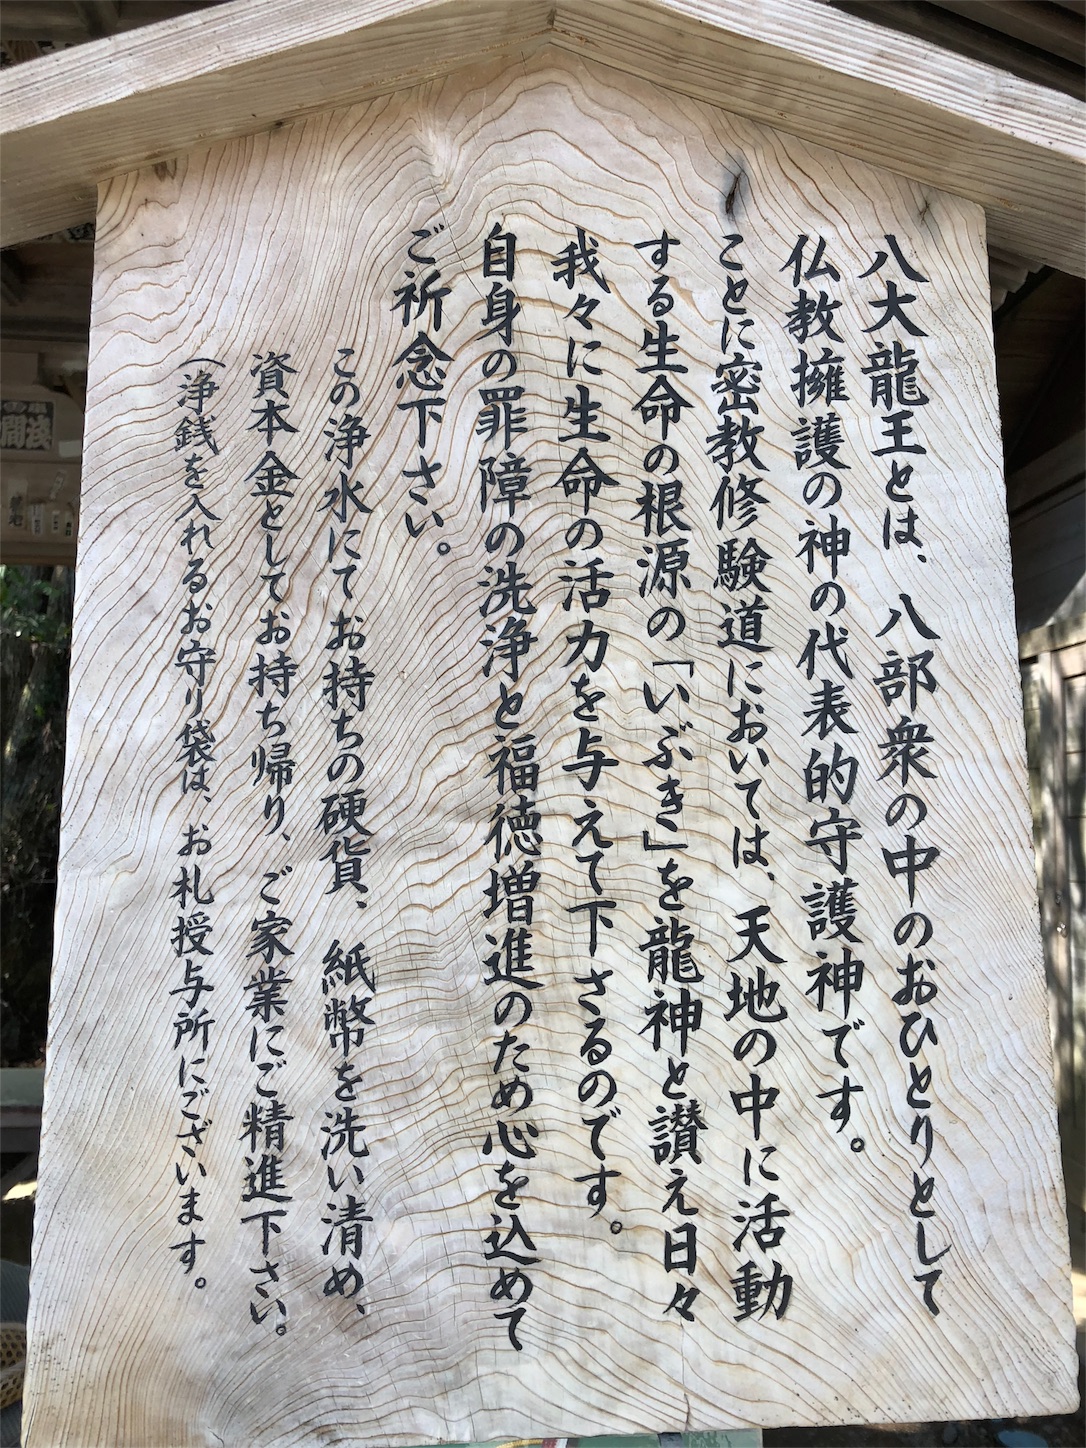 八大龍王とは、八部衆の中のおひとりとして
仏教擁護の神の代表的守護神です。
ことに密教修験道においては、天地の中に活動
する生命の根源の「いぶき」を龍神と讃え日々
我々に生命の活力を与えて下さるのです。
自身の罪障の洗浄と福徳増進のため心を込めて
ご祈念下さい。
この浄水にてお持ちの硬貨、紙幣を洗い清め、
資本金としてお持ち帰り、ご家業にご精進下さい。
（浄銭を入れるお守り袋は、お札授与所にございます。